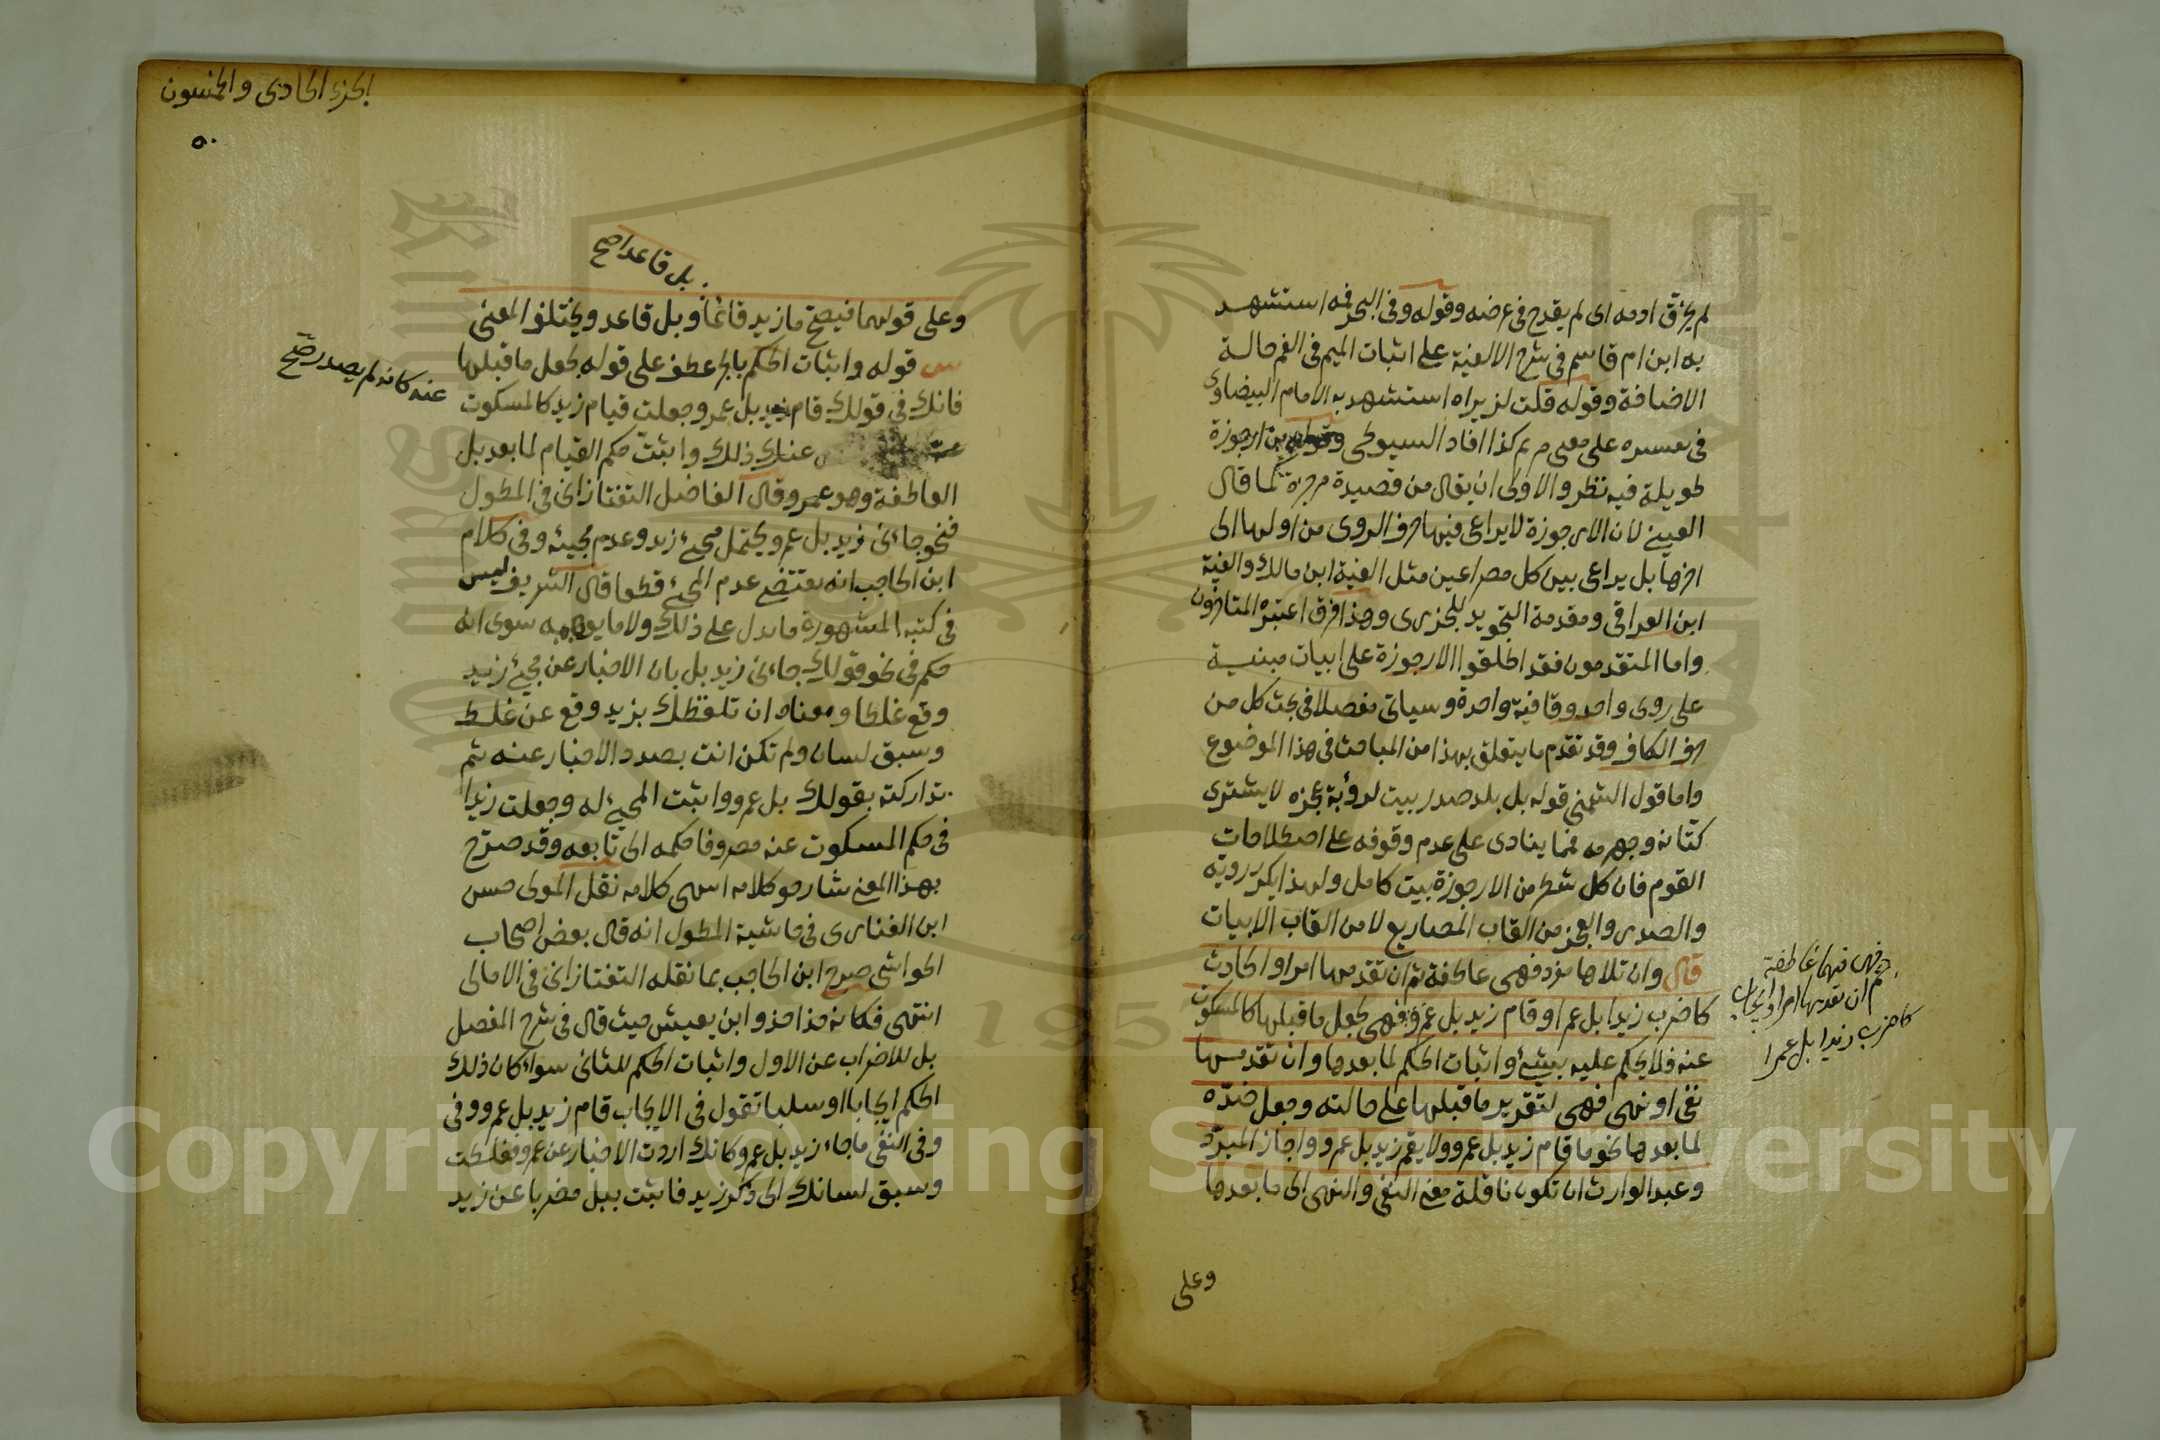 لم يخرق ادمه اى لم يقدح فى عرضه وقوله وفى البحر فمه استشهد
به ابن ام قاسم فى شرح الالفية على اثبات الميم فى الفم حالة
الاضافة وقوله قلت لزير استشهد به الامام البيضاوى
على معنى مريم كذا افاد السيوطى من ارجوزة
طويلة فيه نظر والاولى ان يقال من قصيدة مرجزة كما قال
العينى لان الارجوزة لا يراعى فيها حرف الروى من اولها الى
اخرها بل يراعى بين كل مصراعين مثل الفية ابن مالك والفية
ابن العراقى ومقدمة التجويد للجزرى وهذا فرق اعتبره المتاخرون
واما المتقدمون فقد اطلقوا الارجوزة على ابيات مبنية
على روى واحد وقافية واحدة وسياتى مفصلا فى بحث كل من
حرف الكاف وقد تقدم ما يتعلق بهذا من المباحث فى هذا الموضوع
واما قول الشمنى قوله بل بلد صدر بيت لرؤبة عجزه لا يشترى
كتانه وجهرمه فمما ينادى على عدم وقوفه على اصطلاحات
القوم فان كل شطر من الارجوزة بيت كامل ولهذا يكرر رويه
والصدر والعجز من القاب المصاريع لا من القاب الابيات
قال وان تلاها مفرد فهى عاطفة ثم ان تقدمها امر او ايجاب
كاضرب زيدا بل عمرا او قام زيد بل عمرو فهى تجعل ما قبلها كالمسكوت
عنه فلا يحكم عليه بشئ واثبات الحكم لما بعدها وان تقدمها
نفى او نهى فهى لتقرير ما قبلها على حالته وجعل ضده
لما بعدها نحو ما قام زيد بل عمرو ولا يقم زيد بل عمرو واجاز المبرد
وعبد الوارث ان تكون ناقلة معنى النفى والنهى الى ما بعدها
وعلى
فهى فيها عاطفة
ثم ان تقدمها امر او ايجاب
كاضرب زيدا بل عمرا
الجزء الحادى والخمسون
٥٠
بل قاعدا صح
وعلى قولهما فيصح ما زيد قائما وبل قاعد ويختلف المعنى
س قوله واثبات الحكم بالجر عطف على قوله بجعل ما قبلها
فانك فى قولك قام زيد بل عمرو جعلت قيام زيد كالمسكوت
عنك ذلك واثبت حكم القيام لما بعد بل
عنه كانه لم يصدر صح
العاطفة وهو عمرو قال الفاضل التفتازانى فى المطول
فنحو جاءنى زيد بل عمرو يحتمل مجئ زيد وعدم مجيئه وفى كلام
ابن الحاجب انه يقتضى عدم المجئ قطعا قال الشريف ليس
فى كتبه المشهورة ما يدل على ذلك ولا ما يوهمه سوى انه
حكم فى نحو قولك جاءنى زيد بل بان الاخبار عن مجئ زيد
وقع غلطا ومعناه ان تلفظك بزيد وقع عن غلط
وسبق لسان ولم تكن انت بصدد الاخبار عنه ثم
تداركته بقولك بل عمرو واثبت المجئ له وجعلت زيدا
فى حكم المسكوت عنه مصروفا حكمه الى تابعه وقد صرح
بهذا المعنى شارحو كلامه انتهى كلامه نقل المولى حسن
ابن الفنارى فى حاشية المطول انه قال بعض اصحاب
الحواشى صرح ابن الحاجب بما نقله التفتازانى فى الامالى
انتهى فكانه حذا حذو ابن يعيش حيث قال فى شرح المفصل
بل للاضراب عن الاول واثبات الحكم للثانى سواء كان ذلك
الحكم ايجابا او سلبا تقول فى الايجاب قام زيد بل عمرو وفى
وفى النفى ما جاء زيد بل عمرو كانك اردت الاخبار عن عمرو فغلطت
وسبق لسانك الى ذكر زيد فاثبت ببل مضربا عن زيد
Copyright © King Saud University
1957